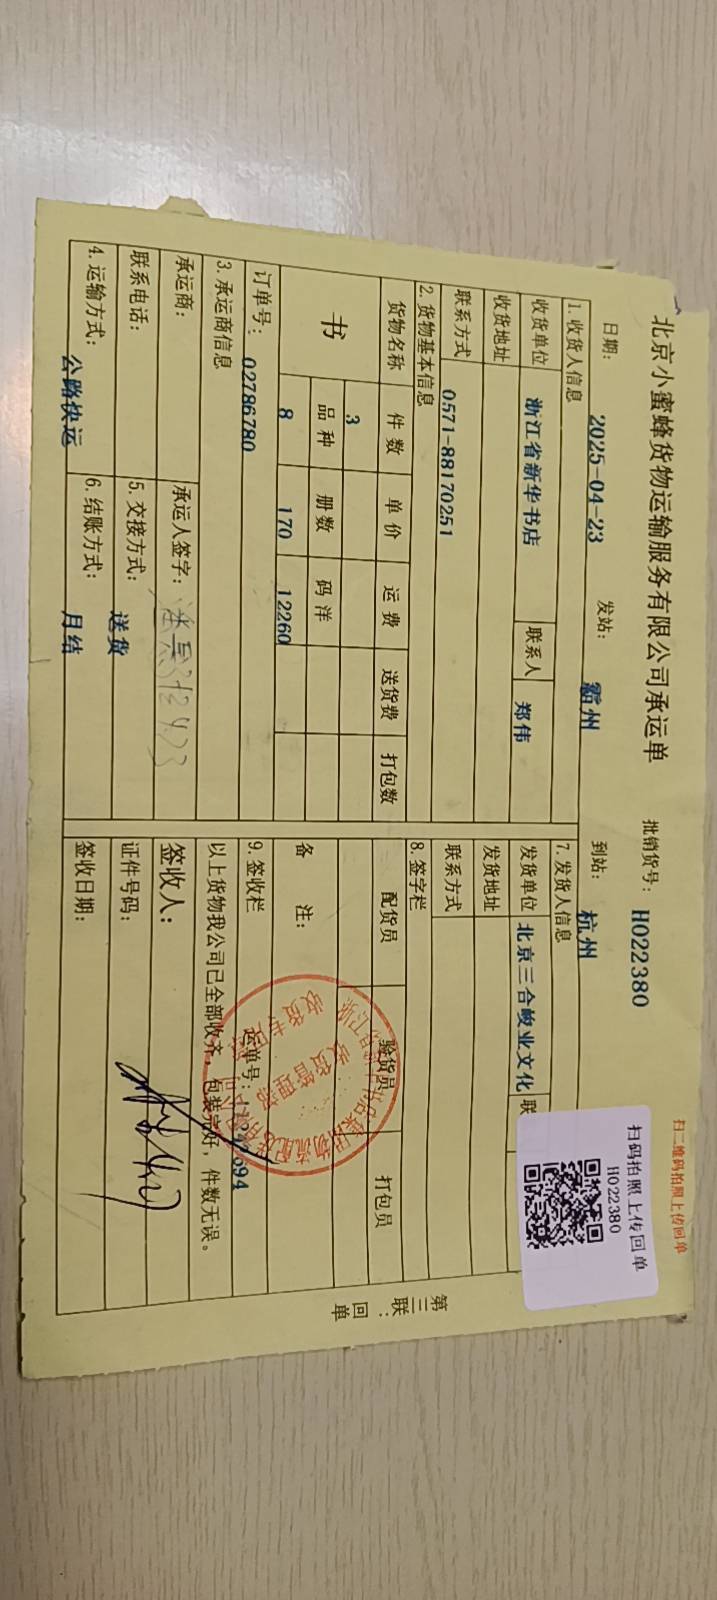 扫二维码拍照上传回单
扫码拍照上传回单
H022380
北京小蜜蜂货物运输服务有限公司承运单
批销货号： H022380
日期： 2025-04-23 发站： 霸州 到站： 杭州
1. 收货人信息
收货单位 浙江省新华书店 联系人 郑伟
收货地址
联系方式 0571-88170251
2. 货物基本信息
货物名称 件数 单价 运费 送货费 打包数
书 3
品种 册数 码洋
8 170 12260
订单号： 02786780
3. 承运商信息
承运商： 承运人签字：
联系电话： 5. 交接方式： 送货
4. 运输方式： 公路快运 6. 结账方式： 月结
7. 发货人信息
发货单位 北京三合骏业文化 联
发货地址
联系方式
8. 签字栏
配货员 验货员 打包员
备 注：
运单号：
9. 签收栏
以上货物我公司已全部收齐，包装完好，件数无误。
签收人：
证件号码：
签收日期：
第三联：回单
收货管理部
收货专用章